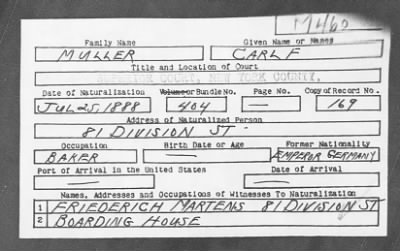 M460
Family Name Given Name or Names
MULLER CARL F
Title and Location of Court
SUPERIOR COURT, NEW YORK COUNTY.
Date of Naturalization Volume or Bundle No. Page No. Copy of Record No.
JUL 25, 1888 404 — 169
Address of Naturalized Person
81 DIVISION ST -
Occupation Birth Date or Age Former Nationality
BAKER — EMPEROR GERMANY
Port of Arrival in the United States Date of Arrival
— —
Names, Addresses and Occupations of Witnesses To Naturalization
1 FRIEDERICH MARTENS 81 DIVISION ST
2 BOARDING HOUSE